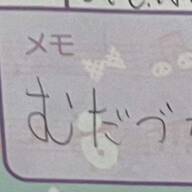 メモ
むだづ